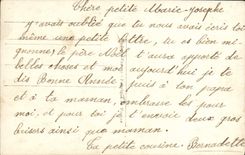 Chère petite Marie-Josephe
J'avais oublié que tu nous avais écris toi
même une petite lettre, tu es bien mi-
gnonne, le père Noël t'aura apporté de
belles choses et moi aujourd'hui je te
dis Bonne Année, puis à ton papa
et à ta maman, embrasse les pour
moi, et pour toi je t'envoie deux gros
baisers ainsi que maman.
Ta petite cousine. Bernadette